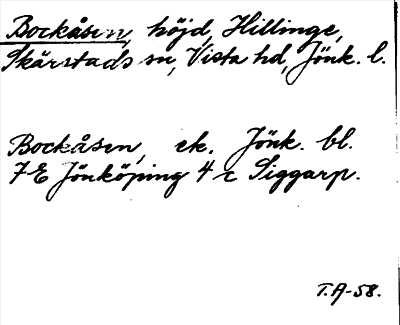 Bockåsen, höjd, Hillinge,
Skärstads sn, Vista hd, Jönk. l.
Bockåsen, ek. Jönk. bl.
7E Jönköping 4 c Siggarp.
T.A-58.